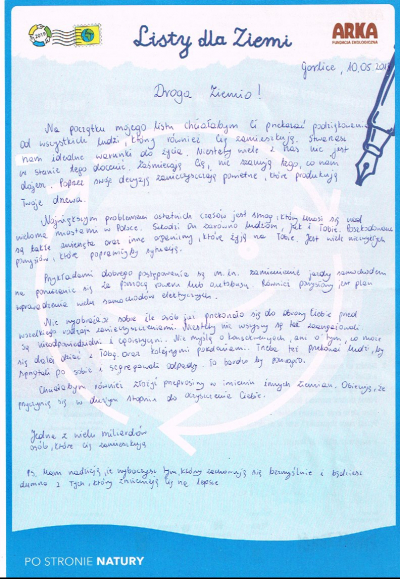 2019
Listy dla Ziemi
ARKA
FUNDACJA EKOLOGICZNA
Gorlice, 10.05.201
Droga Ziemio!
Na początku mojego listu chciałabym Ci przekazać podziękowania
od wszystkich ludzi, którzy również Cię zamieszkują. Stwarzasz
nam idealne warunki do życia. Niestety wiele z nas nie jest
w stanie tego docenić. Zaśmiecają Cię, nie szanują tego, co nam
dajesz. Poprzez swoje decyzje zanieczyszczają powietrze, które produkują
Twoje drzewa.
Największym problemem ostatnich czasów jest smog, który unosi się nad
wieloma miastami w Polsce. Szkodzi On zarówno ludziom, jak i Tobie. Poszkodowane
są także zwierzęta oraz inne organizmy, które żyją na Tobie. Jest wiele
pomysłów, które poprawiłyby sytuację.
Przykładami dobrego postępowania są m.in. zamienianie jazdy samochodem
na poruszanie się za pomocą roweru lub autobusu. Również pomysłowy jest plan
wprowadzenia wielu samochodów elektrycznych.
Nie wyobrażasz sobie ile osób już przekonało się do obrony Ciebie przed
wszelkiego rodzaju zanieczyszczeniami. Niestety nie wszyscy są tak
są nieodpowiedzialni i egoistyczni. Nie myślą o konsekwencjach, ani o tym, co może
się dalej dziać z Tobą oraz kolejnymi pokoleniami. Trzeba też przekonać ludzi, by
sprzątali po sobie i segregowali odpady. To bardzo by pomogło.
Chciałabym również złożyć przeprosiny w imieniu innych Ziemian. Obiecuję, że
przyczynię się w dużym stopniu do oczyszczenia Ciebie.
Jedna z wielu miliardów
osób, które Cię zamieszkują
Ps. Mam nadzieję, że wybaczysz tym, którzy zachowują się bezmyślnie i będziesz
dumna z Tych, którzy zmieniają się na lepsze
PO STRONIE NATURY